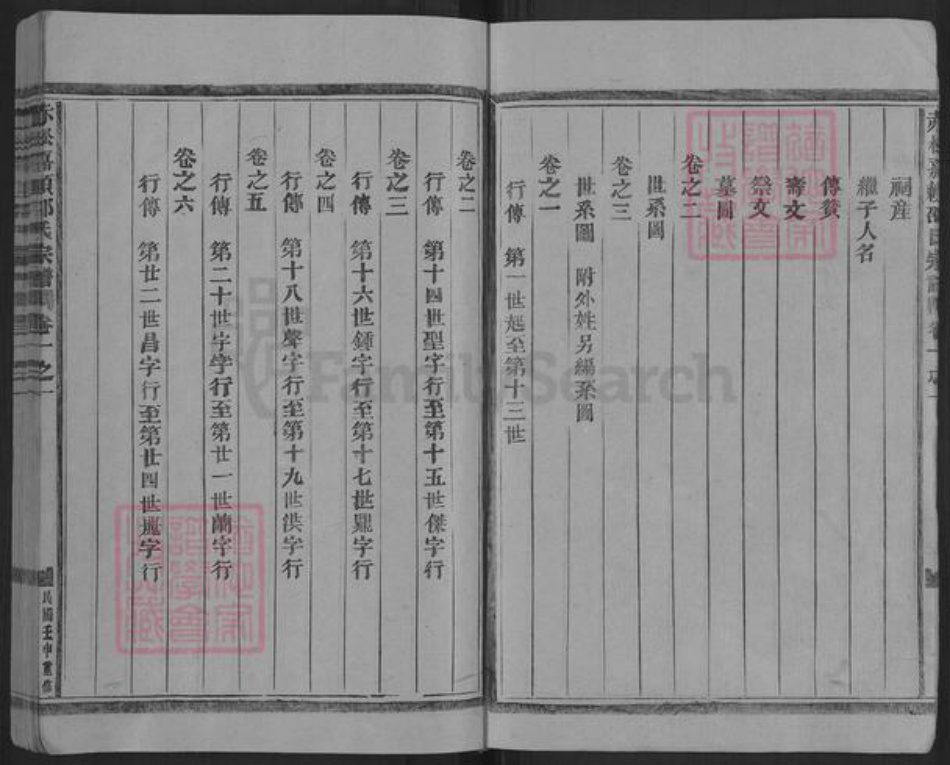 祠産
繼子人名
傳贊
壽文
祭文
墓圖
卷之二
世系圖
卷之三
世系圖 附外姓另編系圖
卷之一
行傳 第一世起至第十三世
卷之二
行傳 第十四世聖字行至第十五世傑字行
卷之三
行傳 第十六世鍾字行至第十七世羆字行
卷之四
行傳 第十八世聲字行至第十九世洪字行
卷之五
行傳 第二十世字字行至第廿一世蘭字行
卷之六
行傳 第廿二世昌字行至第廿四世字行
宗譜 卷一之一
民國壬申重修
FamilySearch